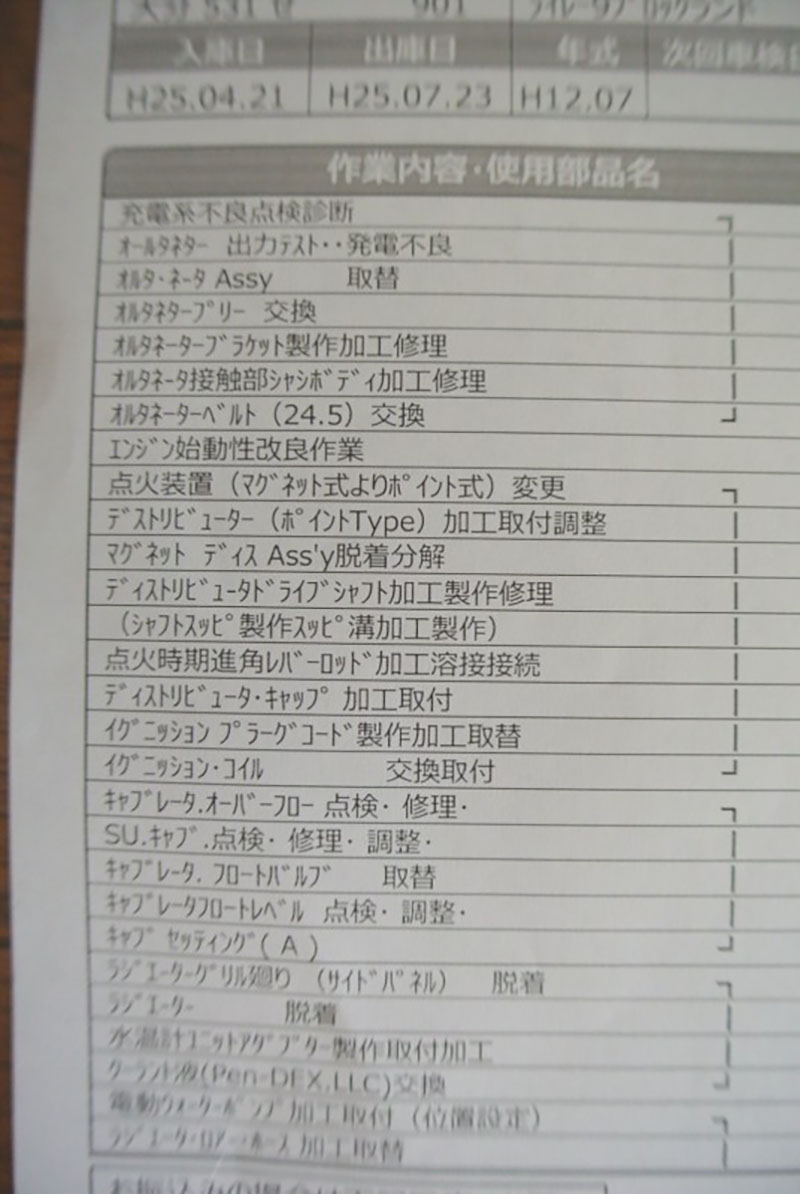 大分 531 せ 901 ライレーサブロックランド
入庫日 出庫日 年式 次回車検日
H25.04.21 H25.07.23 H12.07
作業内容・使用部品名
充電系不良点検診断
ｵｰﾙﾀﾈﾀｰ 出力ﾃｽﾄ・・発電不良
ｵﾙﾀ･ﾈｰﾀ Assy 取替
ｵﾙﾀﾈﾀｰﾌﾟﾘｰ 交換
ｵﾙﾀﾈｰﾀｰﾌﾞﾗｹｯﾄ製作加工修理
ｵﾙﾀﾈｰﾀ接触部ｼｬｼﾎﾞﾃﾞｨ加工修理
ｵﾙﾀﾈｰﾀｰﾍﾞﾙﾄ（24.5）交換
ｴﾝｼﾞﾝ始動性改良作業
点火装置（ﾏｸﾞﾈｯﾄ式よりﾎﾟｲﾝﾄ式）変更
ﾃﾞｽﾄﾘﾋﾞｭｰﾀｰ（ﾎﾟｲﾝﾄType）加工取付調整
ﾏｸﾞﾈｯﾄ ﾃﾞｨｽ Ass'y脱着分解
ﾃﾞｨｽﾄﾘﾋﾞｭｰﾀﾄﾞﾗｲﾌﾞｼｬﾌﾄ加工製作修理
（ｼｬﾌﾄｽｯﾋﾟ製作ｽｯﾋﾟ溝加工製作）
点火時期進角ﾚﾊﾞｰﾛｯﾄﾞ加工溶接接続
ﾃﾞｨｽﾄﾘﾋﾞｭｰﾀ･ｷｬｯﾌﾟ 加工取付
ｲｸﾞﾆｯｼｮﾝ ﾌﾟﾗｰｸﾞｺｰﾄﾞ製作加工取替
ｲｸﾞﾆｯｼｮﾝ･ｺｲﾙ 交換取付
ｷｬﾌﾞﾚｰﾀ.ｵｰﾊﾞｰﾌﾛｰ 点検･ 修理･
SU.ｷｬﾌﾞ.点検･ 修理･ 調整･
ｷｬﾌﾞﾚｰﾀ. ﾌﾛｰﾄﾊﾞﾙﾌﾞ 取替
ｷｬﾌﾞﾚｰﾀﾌﾛｰﾄﾚﾍﾞﾙ 点検･ 調整･
ｷｬﾌﾞ ｾｯﾃｨﾝｸﾞ( A )
ﾗｼﾞｴｰﾀｰｸﾞﾘﾙ廻り （ｻｲﾄﾞﾊﾟﾈﾙ） 脱着
ﾗｼﾞｴｰﾀｰ 脱着
水温計ﾕﾆｯﾄｱﾀﾞﾌﾟﾀｰ製作取付加工
ｸｰﾗﾝﾄ液(Pen-DEX,LLC)交換
電動ｳｫｰﾀｰﾎﾟﾝﾌﾟ加工取付（位置設定）
ﾗｼﾞｴｰﾀ･ﾛｱｰ･ﾎｰｽ 加工取替